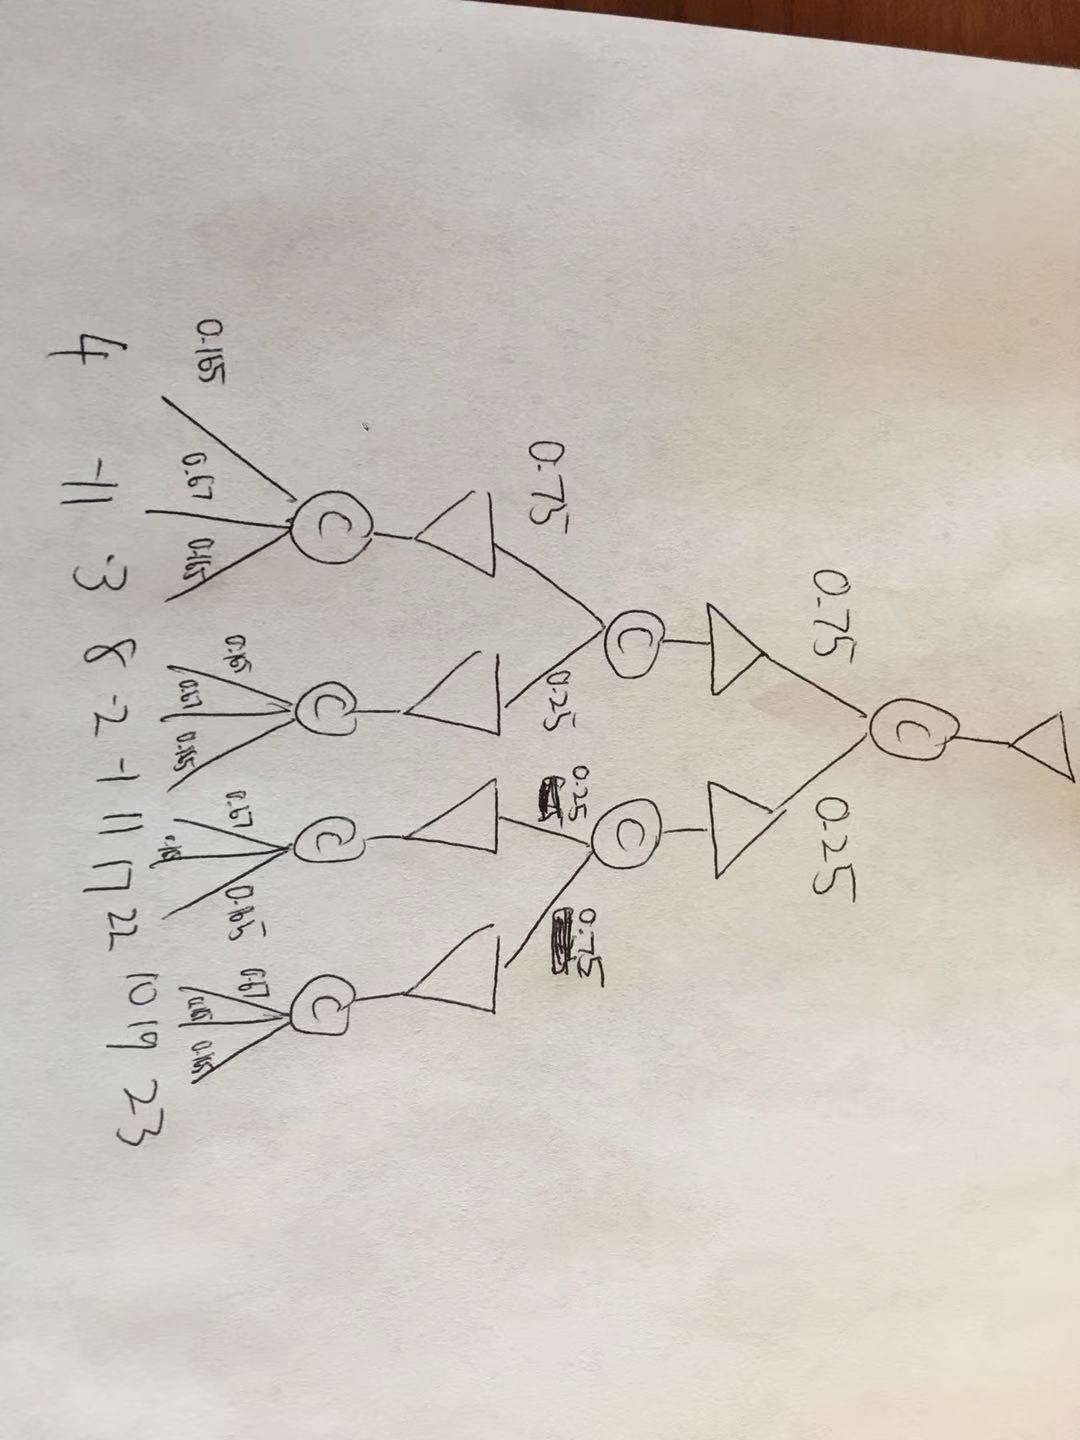 0.75 0.25
C
0.75 0.25 0.25 0.75
C C
C C C C
0.165 0.67 0.165 0.165 0.67 0.165 0.67 0.165 0.67 0.165
4 -11 3 8 -2 -1 11 17 22 10 19 23